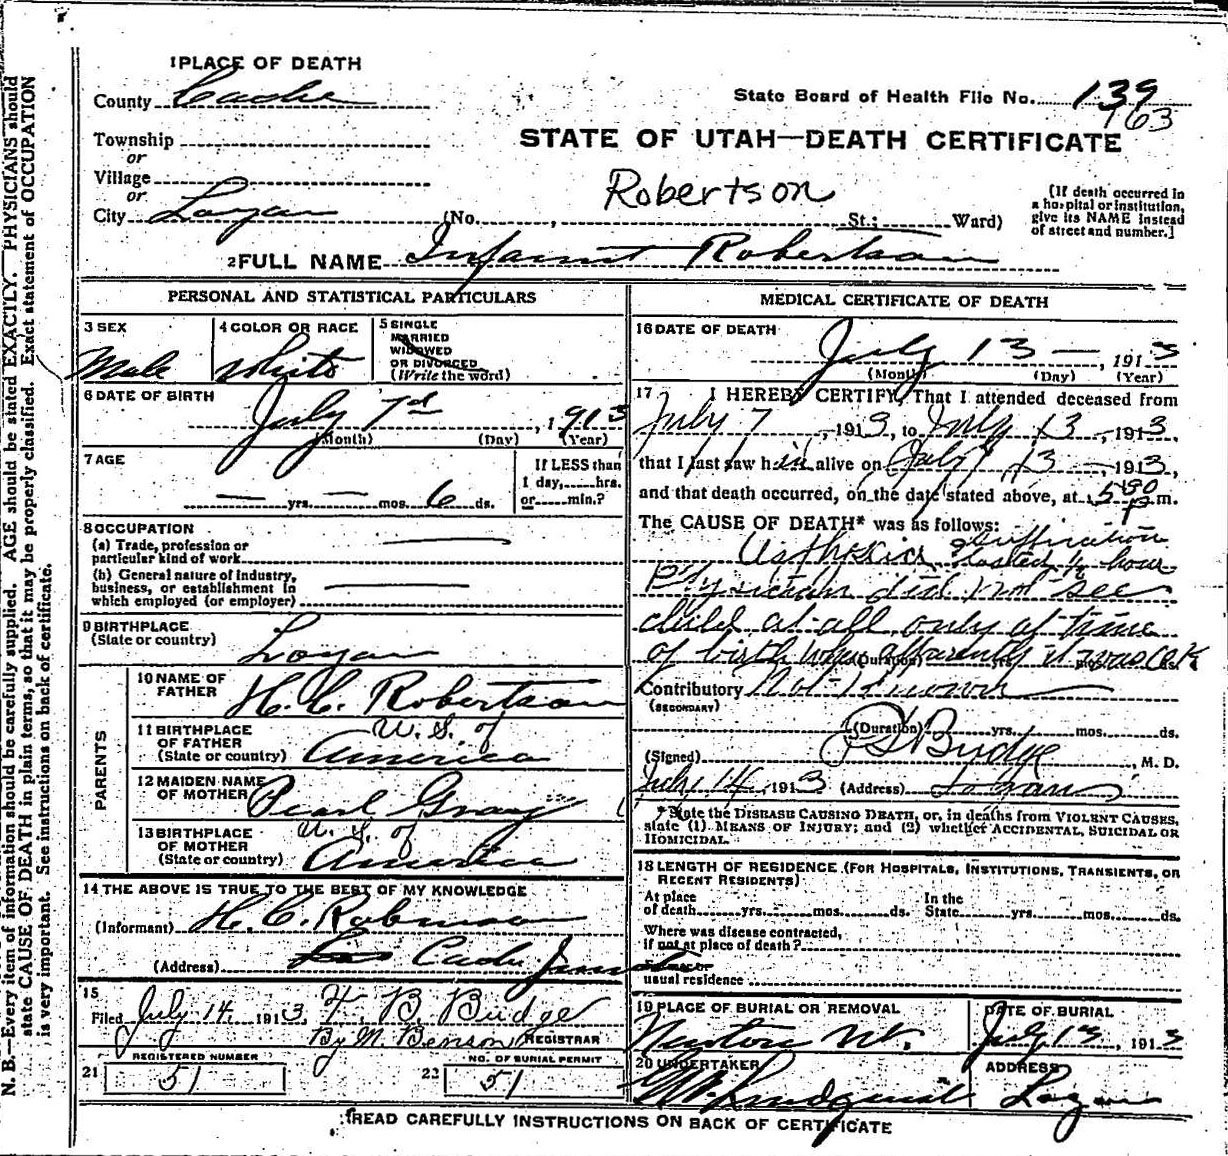 1 PLACE OF DEATH
County Cache
State Board of Health File No. 139
163
Township
or
Village
or
City Logan
STATE OF UTAH—DEATH CERTIFICATE
Robertson
(No. , St.; Ward)
(If death occurred in a hospital or institution, give its NAME instead of street and number.]
2 FULL NAME Infant Robertson
PERSONAL AND STATISTICAL PARTICULARS
3 SEX
Male
4 COLOR OR RACE
White
5 SINGLE
MARRIED
WIDOWED
OR DIVORCED
(Write the word)
6 DATE OF BIRTH
July 7 , 1913
(Month) (Day) (Year)
7 AGE
— yrs. — mos. 6 ds.
If LESS than
1 day, hrs.
or min.?
8 OCCUPATION
(a) Trade, profession or
particular kind of work
(b) General nature of industry,
business, or establishment in
which employed (or employer)
9 BIRTHPLACE
(State or country) Logan
PARENTS
10 NAME OF
FATHER H. C. Robertson
11 BIRTHPLACE
OF FATHER
(State or country) U. S. of America
12 MAIDEN NAME
OF MOTHER Pearl Gray
13 BIRTHPLACE
OF MOTHER
(State or country) U. S. of America
14 THE ABOVE IS TRUE TO THE BEST OF MY KNOWLEDGE
(Informant) H. C. Robinson
(Address) Cache Junct
15
Filed July 14, 1913, F. B. Budge
By M. Benson REGISTRAR
REGISTERED NUMBER
21 51
NO. OF BURIAL PERMIT
22 51
MEDICAL CERTIFICATE OF DEATH
16 DATE OF DEATH
July 13 — , 1913
(Month) (Day) (Year)
17 I HEREBY CERTIFY, That I attended deceased from
July 7 , 1913, to July 13 , 1913,
that I last saw him alive on July 13 , 1913,
and that death occurred, on the date stated above, at 5 30 P m.
The CAUSE OF DEATH* was as follows:
lasted ½ hour
Physician did not see
child at all only at time
of birth when apparently it was O.K.
(Duration) yrs. mos. ds.
Contributory Not Known
(SECONDARY)
(Duration) yrs. mos. ds.
(Signed) Budge , M. D.
July 14, 1913 (Address) Logan
* State the DISEASE CAUSING DEATH, or, in deaths from VIOLENT CAUSES,
state (1) MEANS OF INJURY; and (2) whether ACCIDENTAL, SUICIDAL OR
HOMICIDAL.
18 LENGTH OF RESIDENCE (FOR HOSPITALS, INSTITUTIONS, TRANSIENTS, OR
RECENT RESIDENTS)
At place
of death yrs. mos. ds. In the
State yrs. mos. ds.
Where was disease contracted,
if not at place of death?
Former or
usual residence
19 PLACE OF BURIAL OR REMOVAL
Newton Ut.
DATE OF BURIAL
July 13, 1913
20 UNDERTAKER
Lindquist
ADDRESS
Logan
READ CAREFULLY INSTRUCTIONS ON BACK OF CERTIFICATE
N. B.—Every item of information should be carefully supplied. AGE should be stated EXACTLY. PHYSICIANS should
state CAUSE OF DEATH in plain terms, so that it may be properly classified. Exact statement of OCCUPATION
is very important. See instructions on back of certificate.